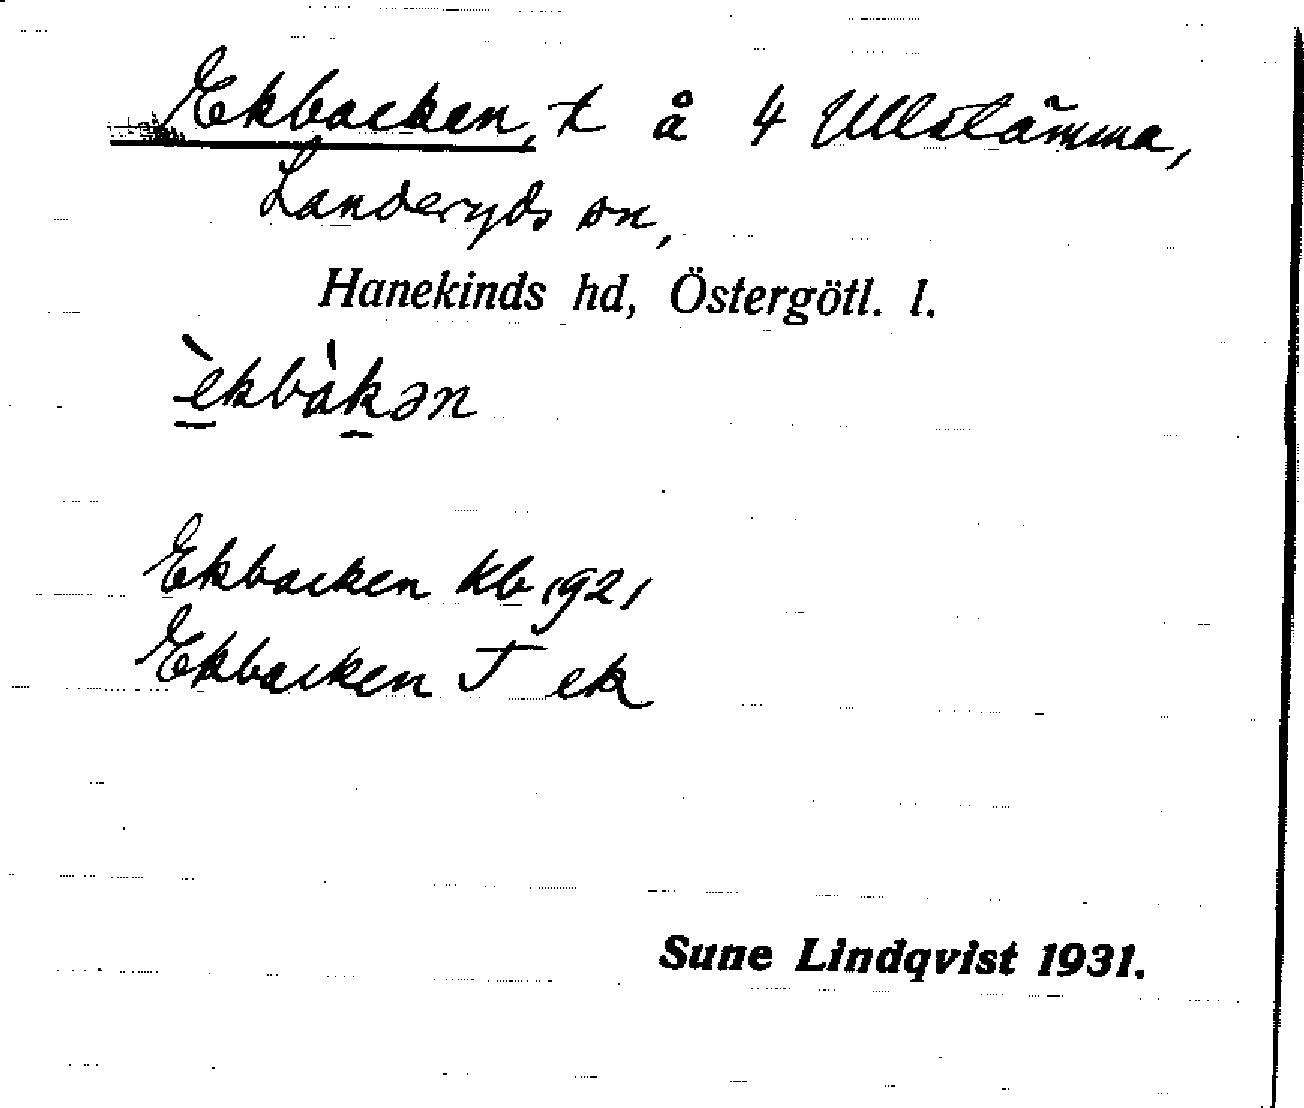 Ekbacken, t å 4 Ullstämma,
Landeryds sn,
Hanekinds hd, Östergötl. l.
èkbàkən
Ekbacken Kb 1921
Ekbacken J ek
Sune Lindqvist 1931.